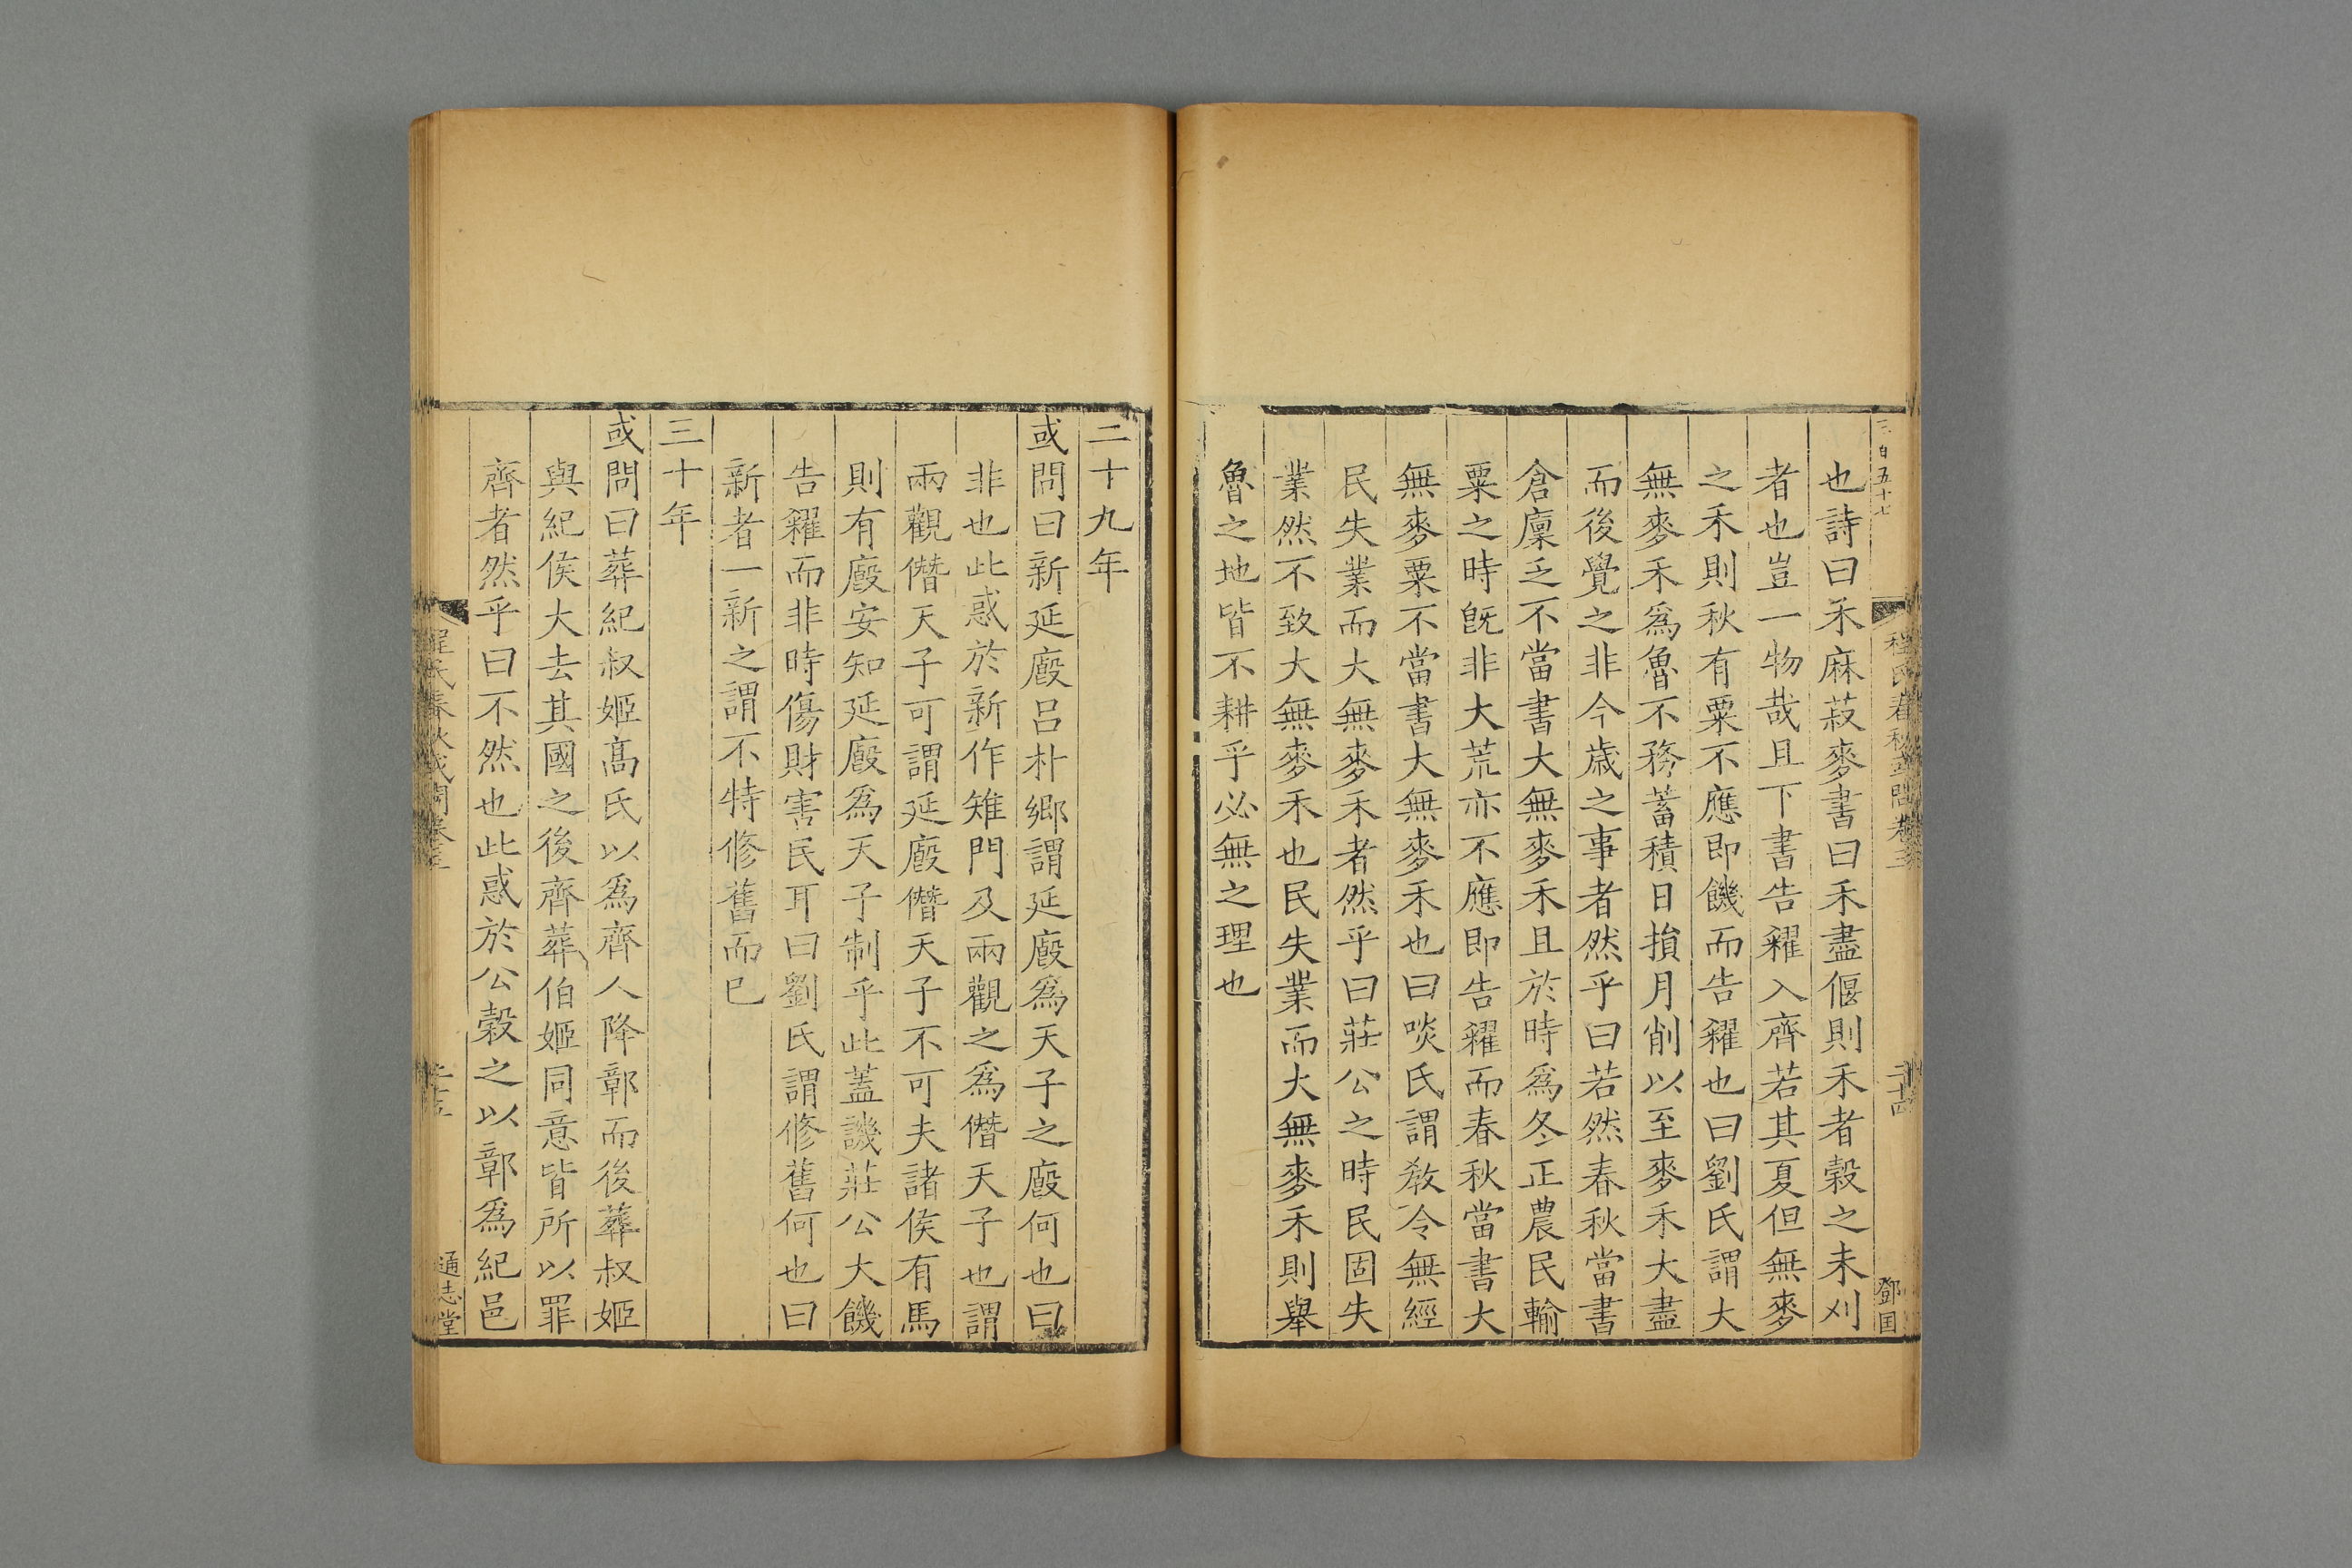 三百五十七
程氏春秋或問卷三
二十四
鄧国
也詩曰禾麻菽麥書曰禾盡偃則禾者穀之未刈
者也豈一物哉且下書告糴入齊若其夏但無麥
之禾則秋有粟不應即饑而告糴也曰劉氏謂大
無麥禾爲魯不務蓄積日損月削以至麥禾大盡
而後覺之非今歳之事者然乎曰若然春秋當書
倉廩乏不當書大無麥禾且於時爲冬正農民輸
粟之時旣非大荒亦不應即告糴而春秋當書大
無麥粟不當書大無麥禾也曰啖氏謂敎令無經
民失業而大無麥禾者然乎曰莊公之時民固失
業然不致大無麥禾也民失業而大無麥禾則舉
魯之地皆不耕乎必無之理也
二十九年
或問曰新延廏吕朴鄉謂延廏爲天子之廏何也曰
非也此惑於新作雉門及兩觀之爲僭天子也謂
兩觀僭天子可謂延廏僭天子不可夫諸侯有馬
則有廏安知延廏爲天子制乎此蓋譏莊公大饑
告糴而非時傷財害民耳曰劉氏謂修舊何也曰
新者一新之謂不特修舊而已
三十年
或問曰葬紀叔姬髙氏以爲齊人降鄣而後葬叔姬
與紀侯大去其國之後齊葬伯姬同意皆所以罪
齊者然乎曰不然也此惑於公榖之以鄣爲紀邑
程氏春秋或問卷三
二十五
通志堂